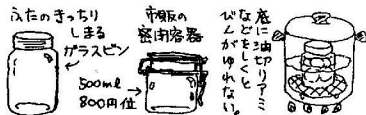 ふたのきっちり
しまる
ガラスビン
市販の
密閉容器
500ml
800円位
底に油切りアミ
などをしくと
びんがゆれない。